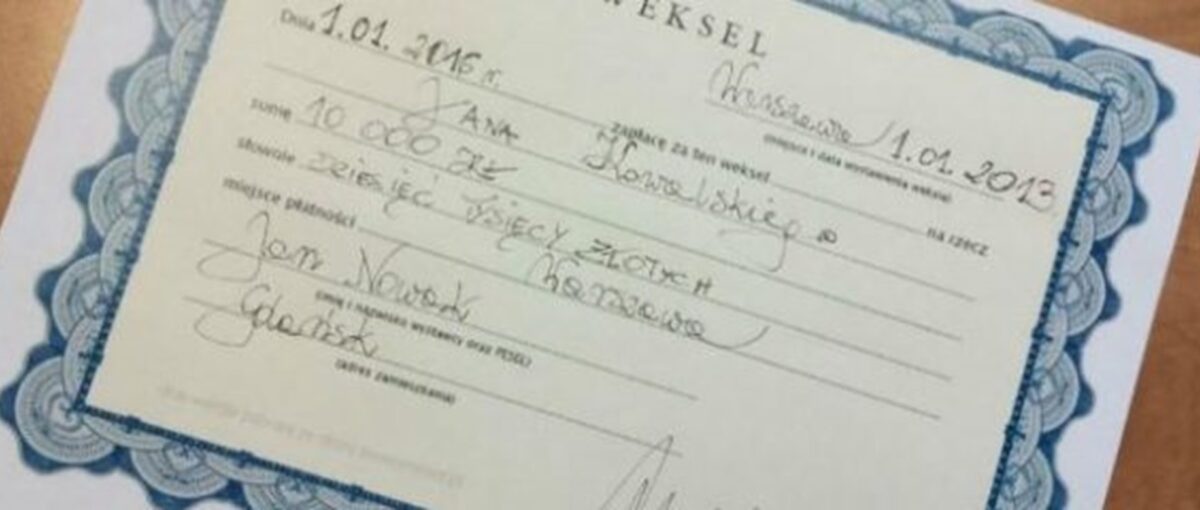 WEKSEL
Warszawa, 1.01.2013
(miejsce i data wystawienia weksla)
Dnia 1.01.2016 r. zapłacę za ten weksel
JANA Kowalskiego na rzecz
sumę 10 000 ZŁ
słownie DZIESIĘĆ TYSIĘCY ZŁOTYCH
miejsce płatności Warszawa
Jan Nowak
(imię i nazwisko wystawcy oraz PESEL)
Gdańsk
(adres zamieszkania)